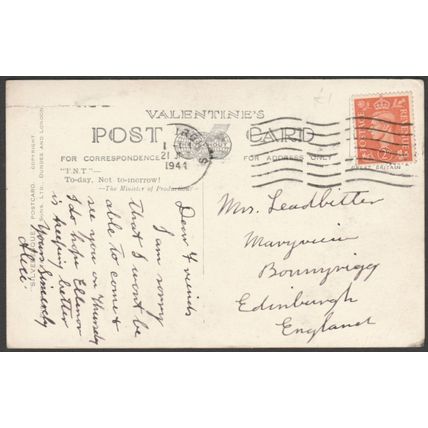 VALENTINE'S
POST CARD
FOR CORRESPONDENCE
FOR ADDRESS ONLY
"T.N.T."—
To-day, Not to-morrow!
—The Minister of Production
21 J
1944
GREAT BRITAIN
Dear Friends
I am sorry
that I wont be
able to come &
see you on Thursday
I do hope Ellenor
is keeping better
Yours Sincerely
Alice
Mrs. Leadbitter
Maryview
Bonnyrigg
Edinburgh
England
POSTCARD. COPYRIGHT.
SONS, LTD., DUNDEE AND LONDON.